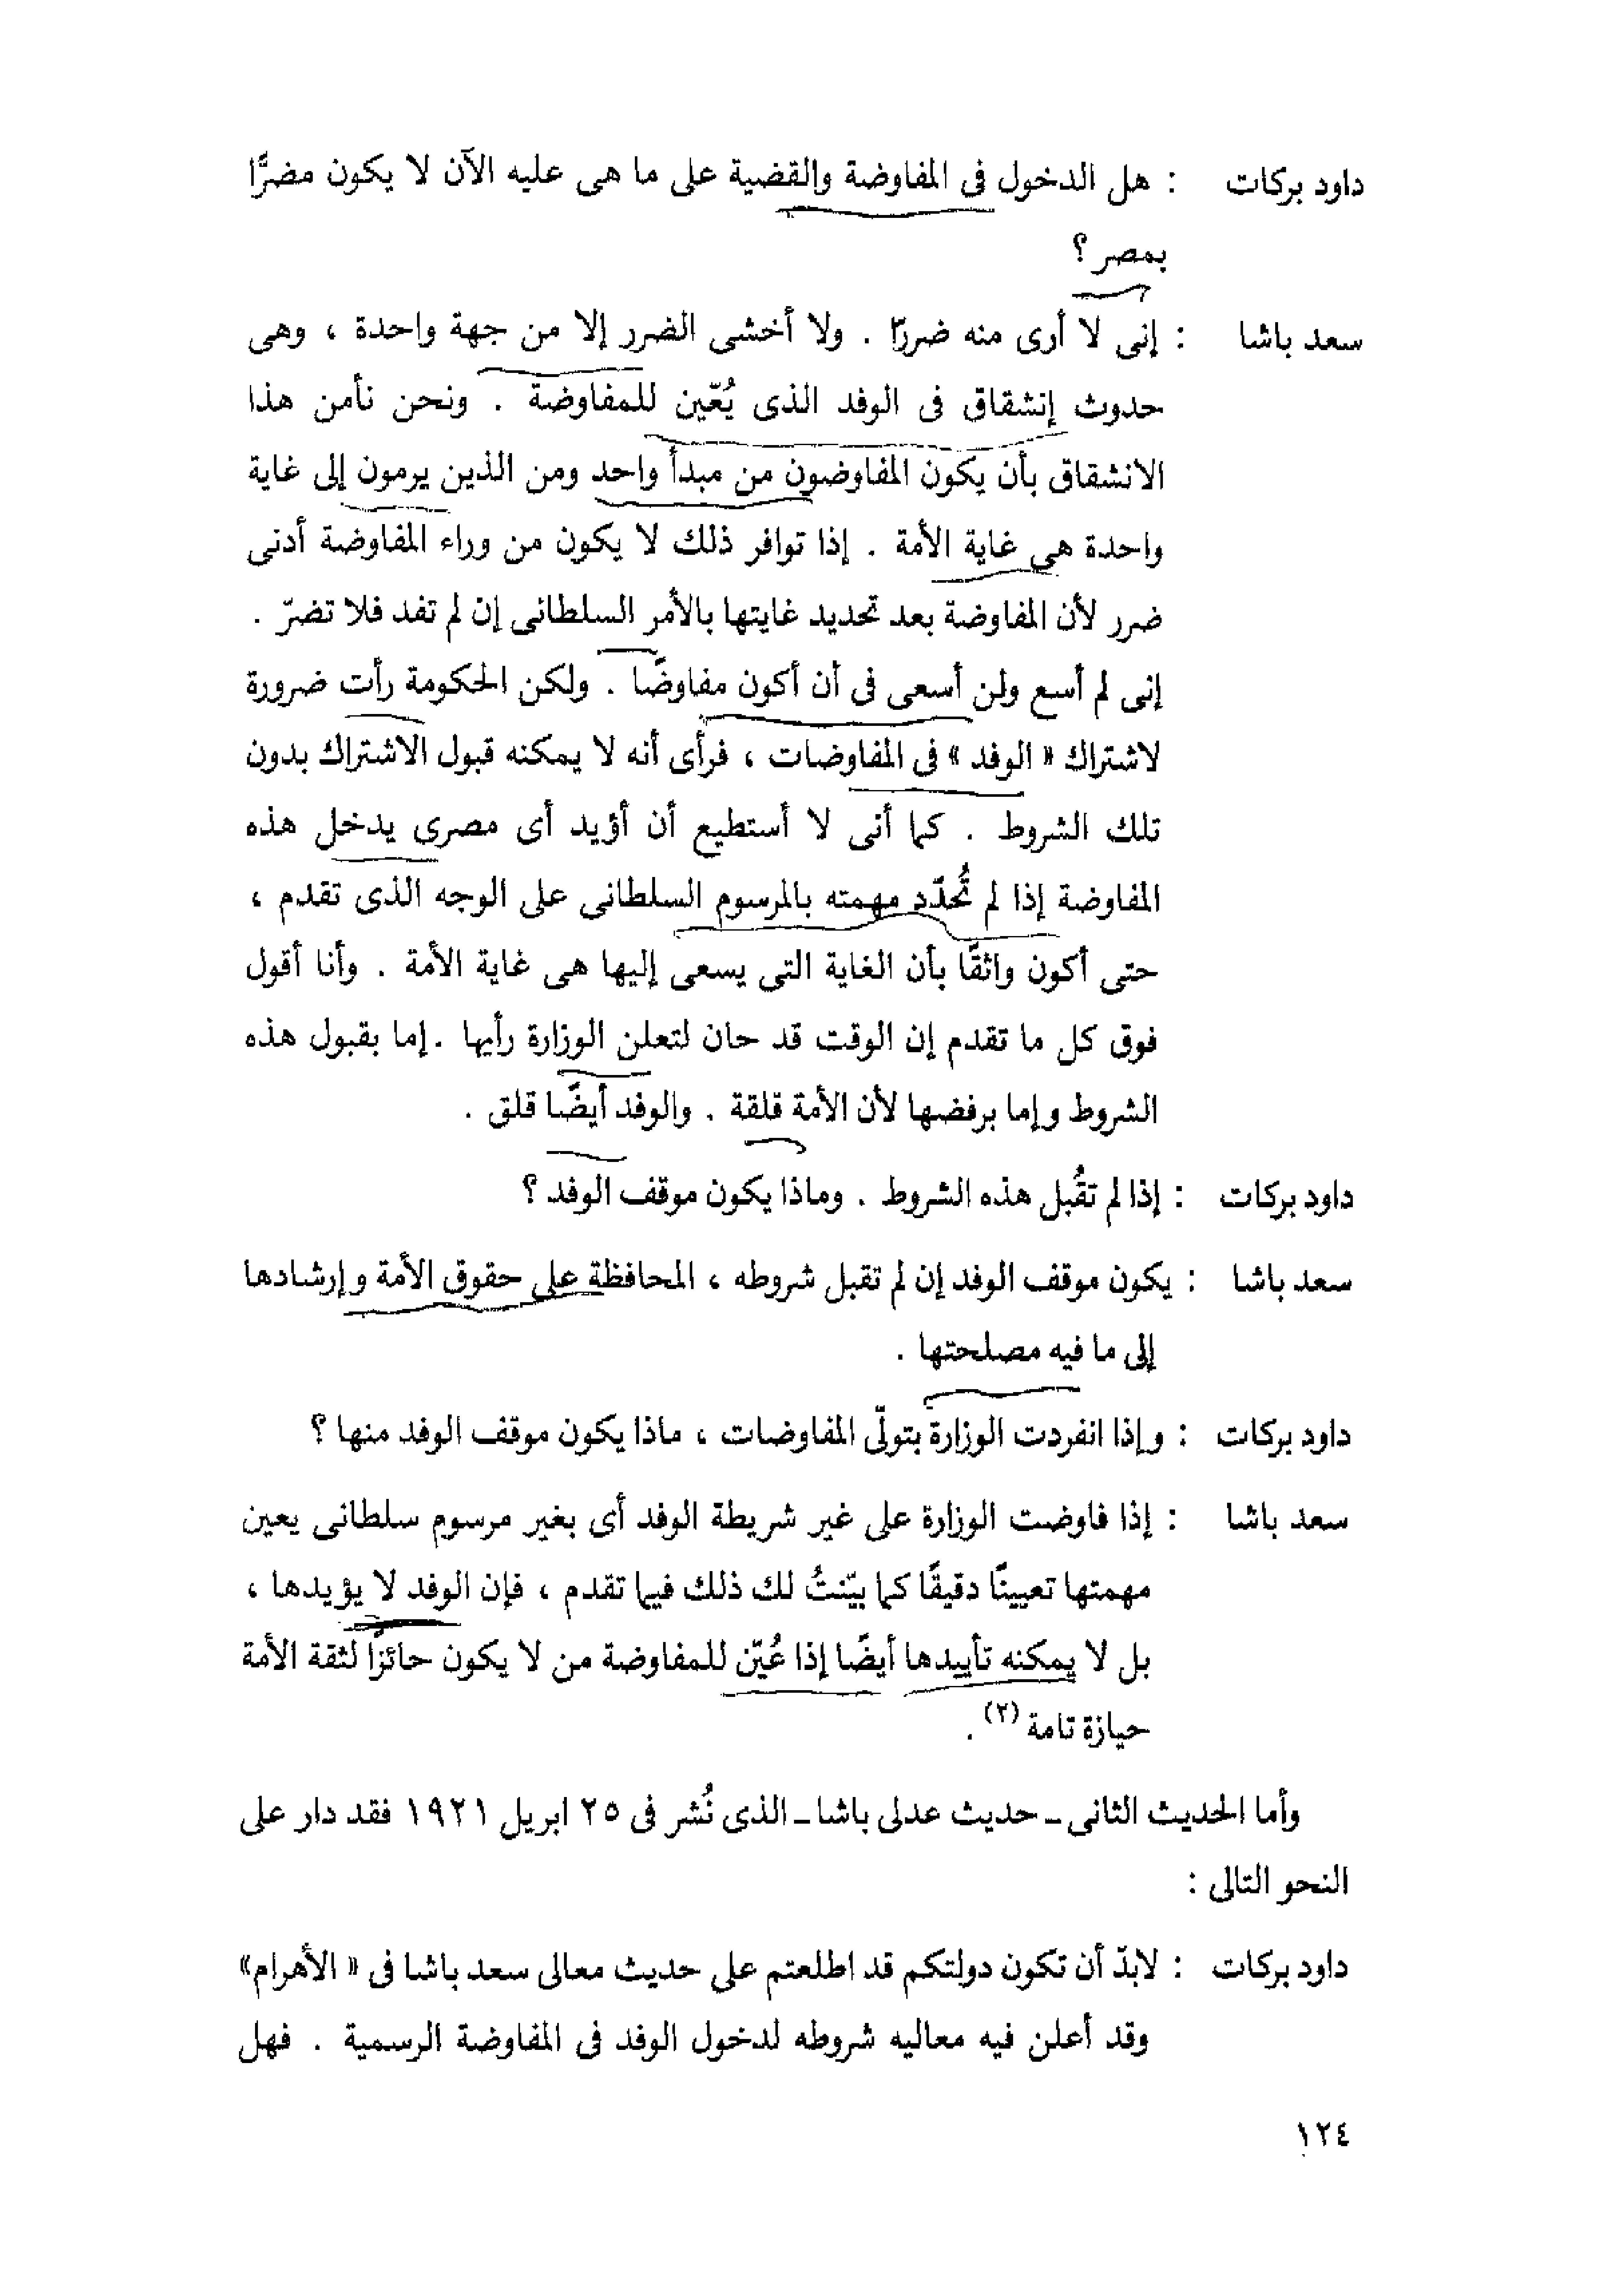 داود بركات : هل الدخول فى المفاوضة والقضية على ما هى عليه الآن لا يكون مضرًّا
بمصر ؟
سعد باشا : إنى لا أرى منه ضررًا . ولا أخشى الضرر إلا من جهة واحدة ، وهى
حدوث إنشقاق فى الوفد الذى يُعّين للمفاوضة . ونحن نأمن هذا
الانشقاق بأن يكون المفاوضون من مبدأ واحد ومن الذين يرمون إلى غاية
واحدة هى غاية الأمة . إذا توافر ذلك لا يكون من وراء المفاوضة أدنى
ضرر لأن المفاوضة بعد تحديد غايتها بالأمر السلطانى إن لم تفد فلا تضرّ .
إنى لم أسع ولن أسعى فى أن أكون مفاوضًا . ولكن الحكومة رأت ضرورة
لاشتراك « الوفد » فى المفاوضات ، فرأى أنه لا يمكنه قبول الاشتراك بدون
تلك الشروط . كما أنى لا أستطيع أن أؤيد أى مصرى يدخل هذه
المفاوضة إذا لم تُحدّد مهمته بالمرسوم السلطانى على الوجه الذى تقدم ،
حتى أكون واثقًا بأن الغاية التى يسعى إليها هى غاية الأمة . وأنا أقول
فوق كل ما تقدم إن الوقت قد حان لتعلن الوزارة رأيها . إما بقبول هذه
الشروط وإما برفضها لأن الأمة قلقة . والوفد أيضًا قلق .
داود بركات : إذا لم تقُبل هذه الشروط . وماذا يكون موقف الوفد ؟
سعد باشا : يكون موقف الوفد إن لم تقبل شروطه ، المحافظة على حقوق الأمة وإرشادها
إلى ما فيه مصلحتها .
داود بركات : وإذا انفردت الوزارة بتولّى المفاوضات ، ماذا يكون موقف الوفد منها ؟
سعد باشا : إذا فاوضت الوزارة على غير شريطة الوفد أى بغير مرسوم سلطانى يعين
مهمتها تعيينًا دقيقًا كما بيّنتُ لك ذلك فيما تقدم ، فإن الوفد لا يؤيدها ،
بل لا يمكنه تأييدها أيضًا إذا عُيّن للمفاوضة من لا يكون حائزًا لثقة الأمة
حيازة تامة (٢) .
وأما الحديث الثانى ـ حديث عدلى باشا ـ الذى نُشر فى ٢٥ ابريل ١٩٢١ فقد دار على
النحو التالى :
داود بركات : لابدّ أن تكون دولتكم قد اطلعتم على حديث معالى سعد باشا فى « الأهرام»
وقد أعلن فيه معاليه شروطه لدخول الوفد فى المفاوضة الرسمية . فهل
١٢٤